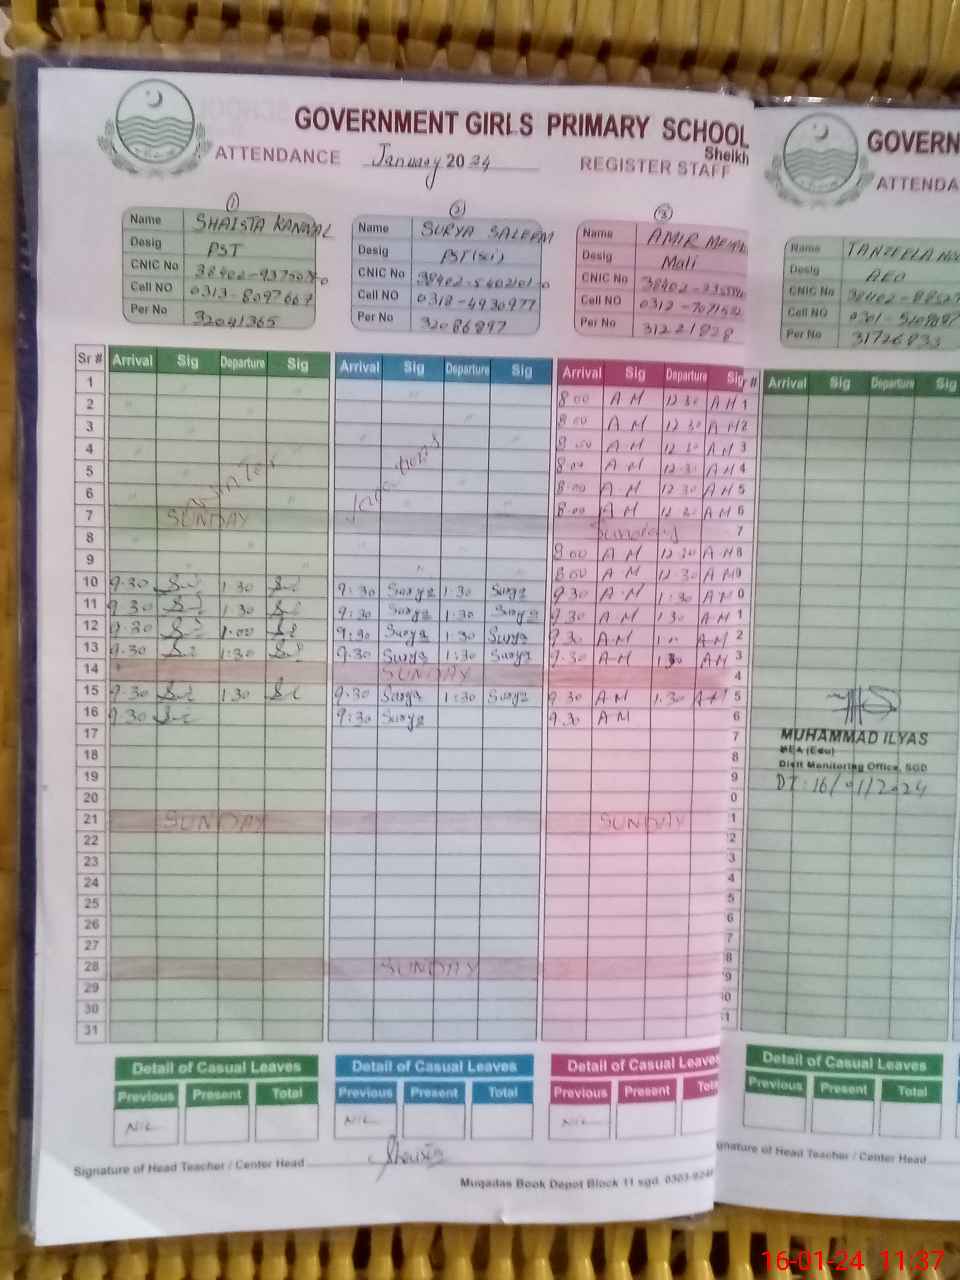 GOVERNMENT GIRLS PRIMARY SCHOOL
Sheikh
ATTENDANCE January 2024 REGISTER STAFF
1
Name SHAISTA KANWAL
Desig PST
CNIC No
Cell NO 0313-8097667
Per No 32041365
2
Name SURYA SALEEM
Desig PST(sci)
CNIC No 38402-5402101-0
Cell NO 0318-4930977
Per No 32086897
3
Name AMIR
Desig Mali
CNIC No 38402-
Cell NO 0312-
Per No 31221828
Sr # Arrival Sig Departure Sig Arrival Sig Departure Sig Arrival Sig Departure Sig
1 8 00 A M 12 30 A M
2 8 00 A M 12 30 A M
3 8 00 A M 12 30 A M
4 8 00 A M 12 30 A M
5 8 00 A M 12 30 A M
6 8 00 A M 12 30 A M
Winter Vacations
7 SUNDAY Sunday
8 8 00 A M 12 30 A M
9 8 00 A M 12 30 A M
10 9.30 1 30 9:30 Surya 1:30 Surya 9 30 A M 1 30 A M
11 9 30 1 30 9:30 Surya 1:30 Surya 9 30 A M 1 30 A M
12 9.30 1.00 9:30 Surya 1:30 Surya 9 30 A M A M
13 9.30 1:30 9:30 Surya 1:30 Surya 9.30 A M 1 30 A M
14 SUNDAY
15 9.30 1 30 9.30 Surya 1:30 Surya 9 30 A M 1.30 A M
16 9.30 9:30 Surya 9.30 A M
17
18
19
20
21 SUNDAY SUNDAY
22
23
24
25
26
27
28 SUNDAY
29
30
31
Detail of Casual Leaves Detail of Casual Leaves Detail of Casual Leaves
Previous Present Total Previous Present Total Previous Present
NIL NIL NIL
Signature of Head Teacher / Center Head Shaista
Muqadas Book Depot Block 11 sgd.
GOVERN
ATTENDA
Name TANZEELA
Desig AEO
CNIC No
Cell NO
Per No 31726833
Arrival Sig Departure Sig
MUHAMMAD ILYAS
MEA (Edu)
Distt Monitoring Office, SGD
DT: 16/01/2024
Detail of Casual Leaves
Previous Present Total
gnature of Head Teacher / Center Head
16-01-24 11:37